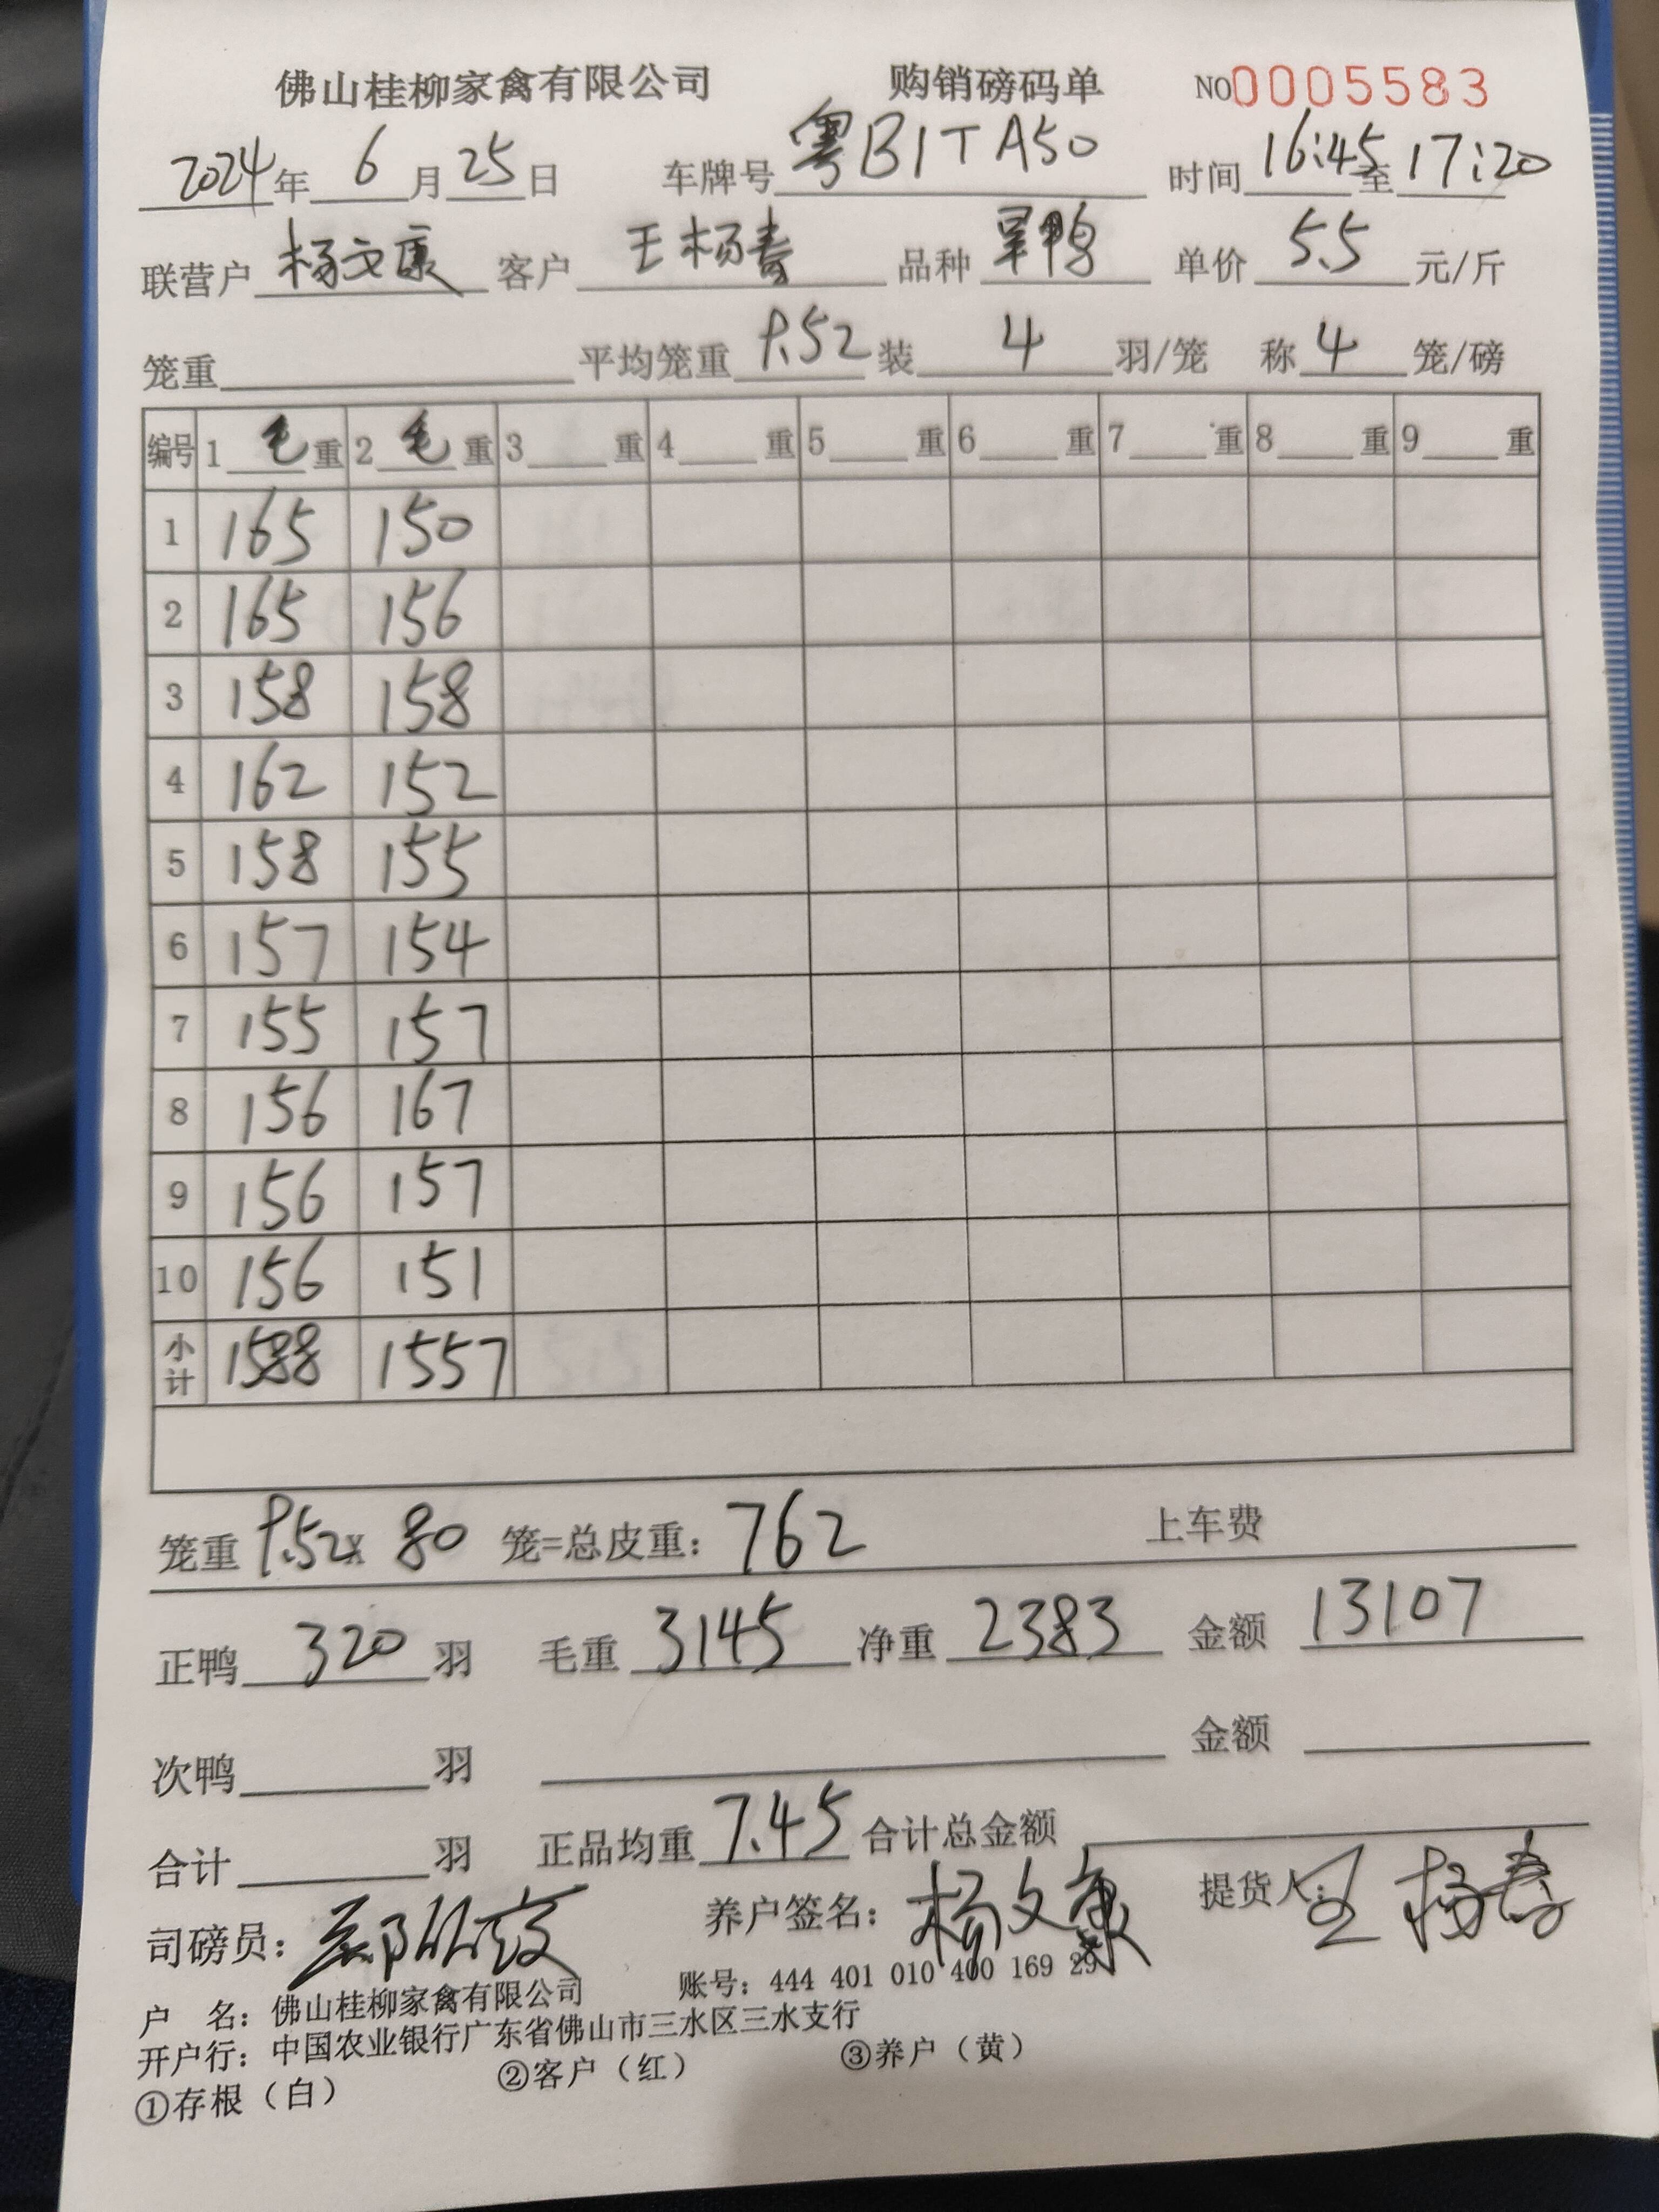 佛山桂柳家禽有限公司 购销磅码单 NO0005583
2024年 6 月 25 日 车牌号 粤B1TA50 时间 16:45 至 17:20
联营户 杨文康 客户 王杨春 品种 旱鸭 单价 5.5 元/斤
笼重 平均笼重 9.52 装 4 羽/笼 称 4 笼/磅
编号 1 毛 重 2 毛 重 3 重 4 重 5 重 6 重 7 重 8 重 9 重
1 165 150
2 165 156
3 158 158
4 162 152
5 158 155
6 157 154
7 155 157
8 156 167
9 156 157
10 156 151
小计 1588 1557
笼重 9.52 x 80 笼=总皮重: 762 上车费
正鸭 320 羽 毛重 3145 净重 2383 金额 13107
次鸭 羽 金额
合计 羽 正品均重 7.45 合计总金额
司磅员: 养户签名: 杨文康 提货人: 王杨春
户 名: 佛山桂柳家禽有限公司 账号: 444 401 010 400 169 29
开户行: 中国农业银行广东省佛山市三水区三水支行
①存根（白） ②客户（红） ③养户（黄）